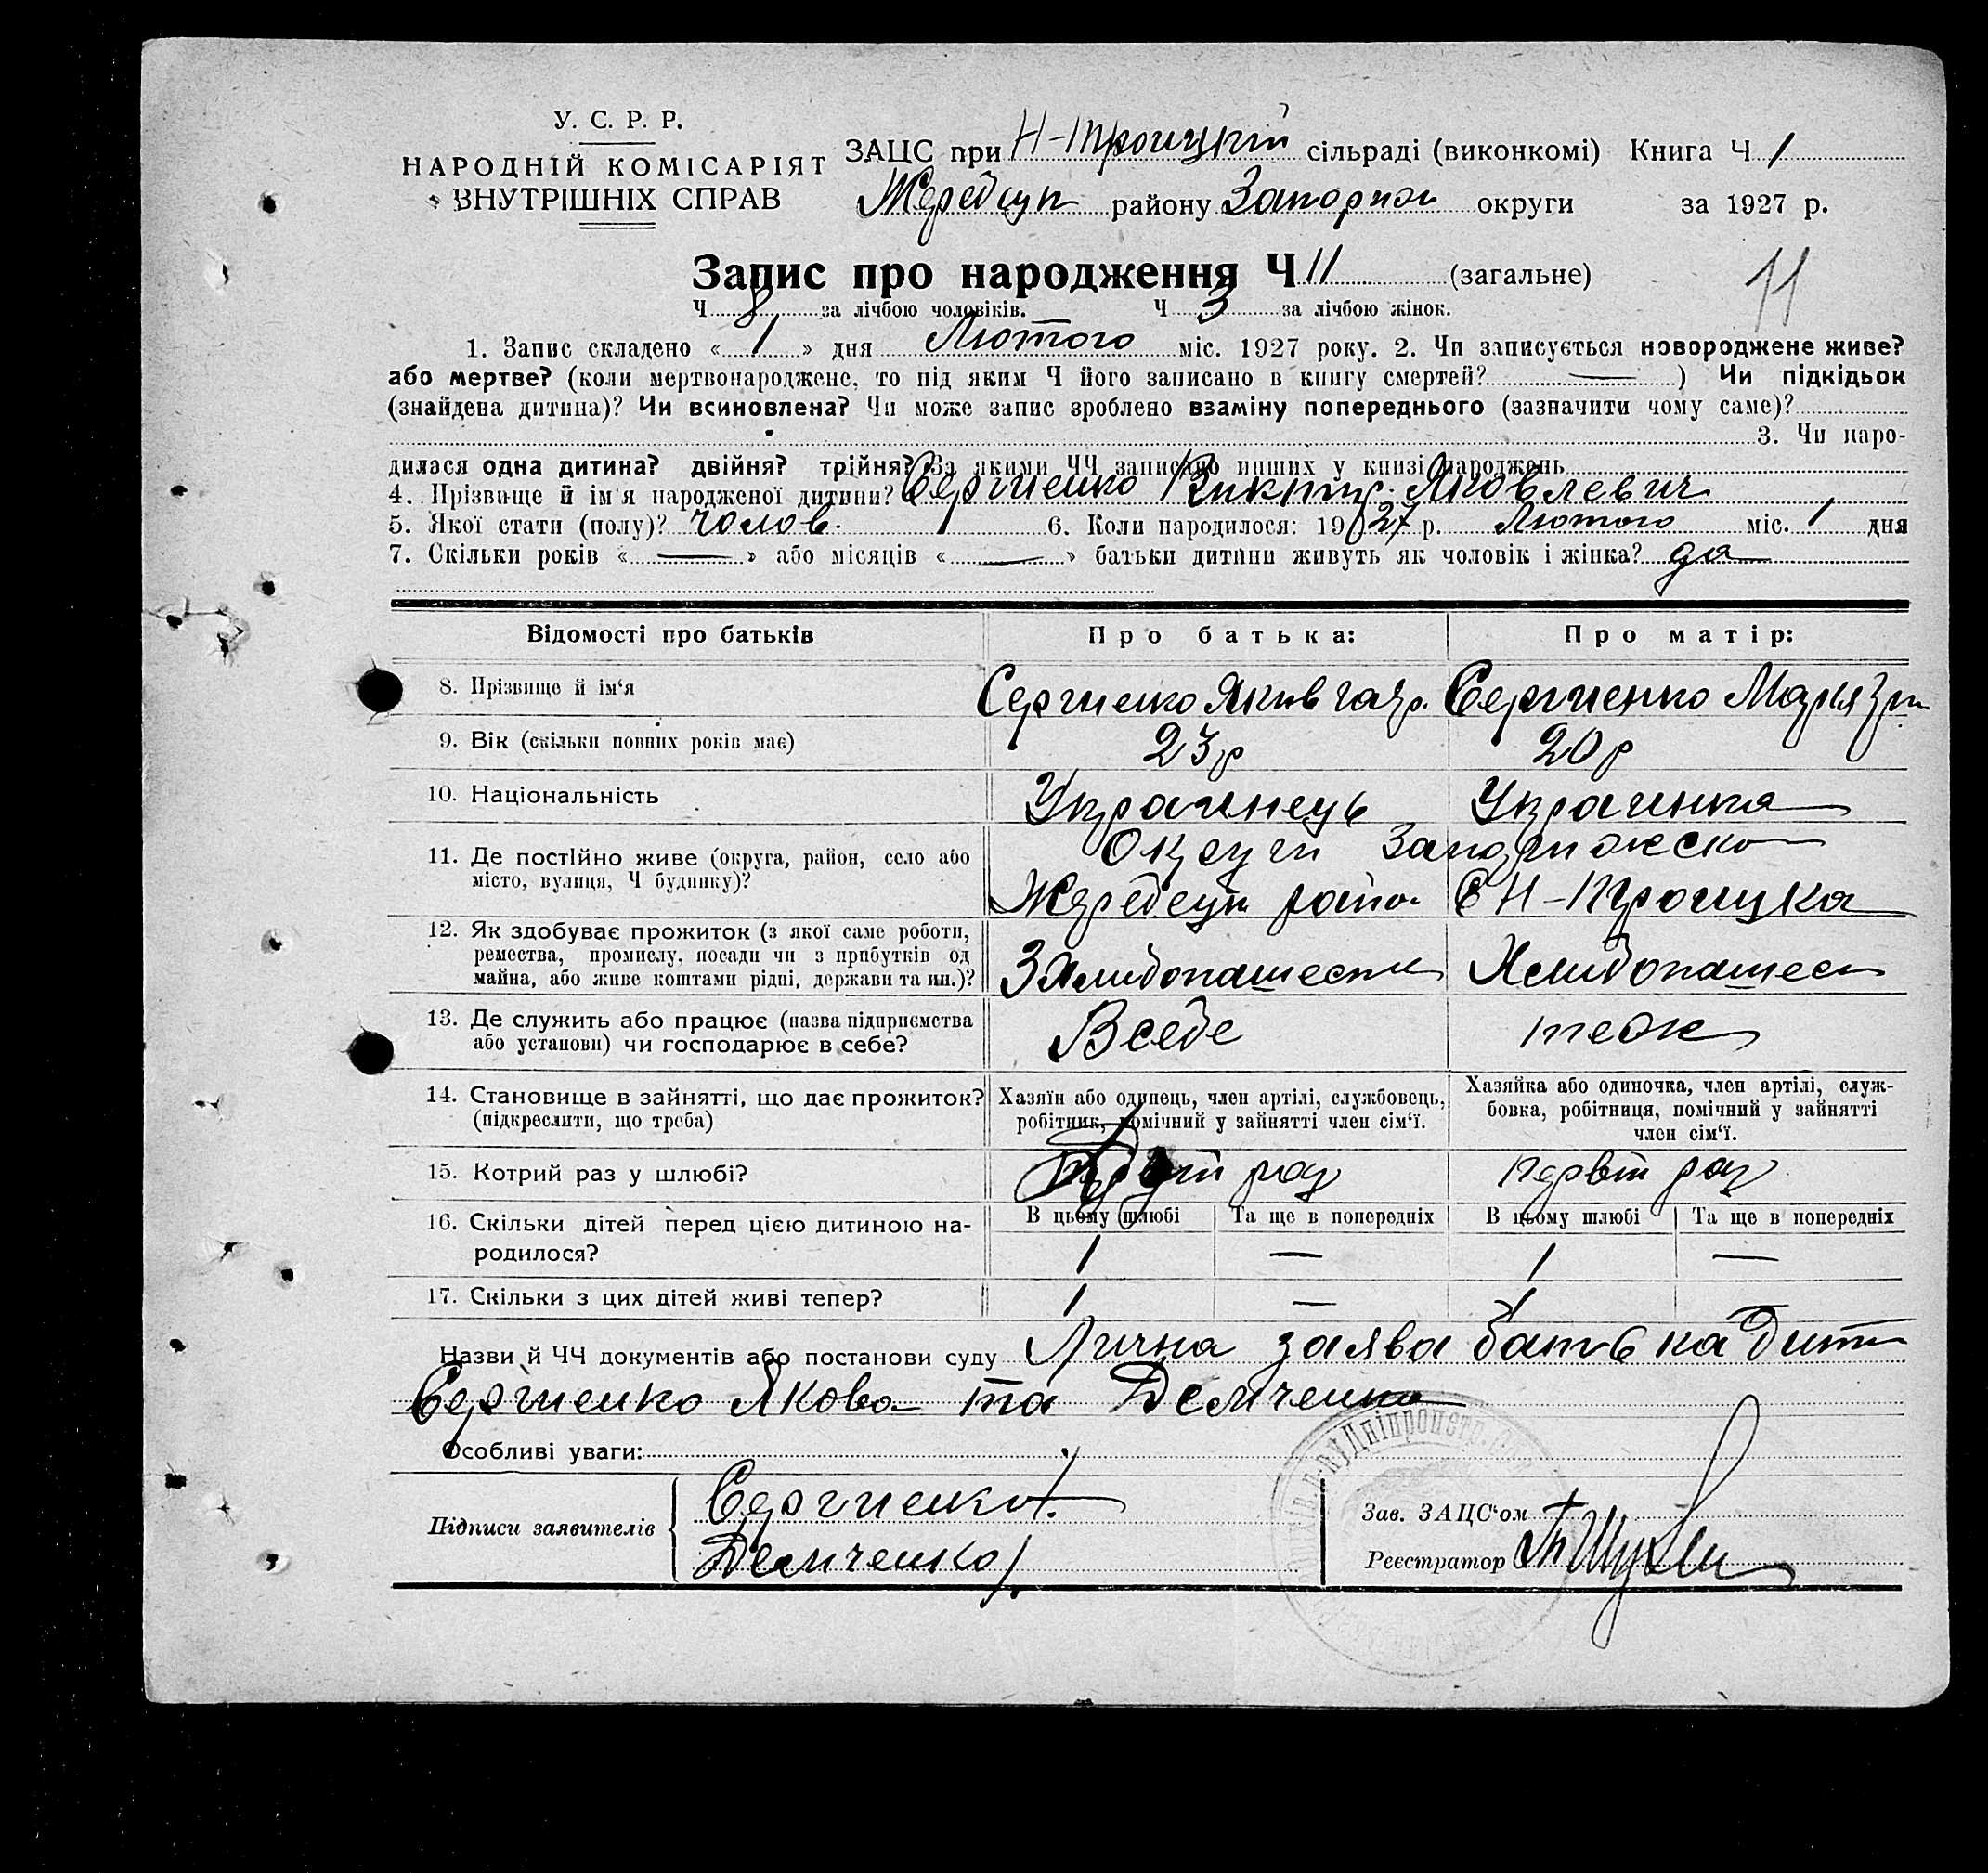 У. С. Р. Р.
НАРОДНІЙ КОМІСАРІЯТ
ВНУТРІШНІХ СПРАВ
ЗАЦС при Н-Троицкій сільраді (виконкомі) Книга Ч 1
Жеребецк району Запориж округи за 1927 р.
Запис про народження Ч 11 (загальне)
11
Ч 8 за лічбою чоловіків. Ч 3 за лічбою жінок.
1. Запис складено « 1 » дня Лютого міс. 1927 року. 2. Чи записується новороджене живе?
або мертве? (коли мертвонароджене, то під яким Ч його записано в книгу смертей? — ) Чи підкідьок
(знайдена дитина)? Чи всиновлена? Чи може запис зроблено взаміну попереднього (зазначити чому саме)?
3. Чи наро-
дилася одна дитина? двійня? трійня? За якими ЧЧ записано инших у книзі народжень
4. Прізвище й ім'я народженої дитини? Сергиенко Виктор Яковлевич
5. Якої стати (полу)? чолов. 6. Коли народилося: 1927 р. Лютого міс. 1 дня
7. Скільки років « — » або місяців « — » батьки дитини живуть як чоловік і жінка? да
Відомості про батьків Про батька: Про матір:
8. Прізвище й ім‘я Сергиенко Якив Сергиенко Мария
9. Вік (скільки повних років має) 23 р 20 р
10. Національність Украинець Украинка
11. Де постійно живе (округа, район, село або Округи Запорижско
місто, вулиця, Ч будинку)? Жеребецк район С Н-Троицка
12. Як здобуває прожиток (з якої саме роботи,
ремества, промислу, посади чи з прибутків од
майна, або живе коштами рідні, держави та ин.)? З Хлибопашеств Хлибопашес
13. Де служить або працює (назва підприємства
або установи) чи господарює в себе? Всебе теж
14. Становище в зайнятті, що дає прожиток? Хазяїн або одинець, член артілі, службовець, Хазяйка або одиночка, член артілі, служ-
(підкреслити, що треба) робітник, помічний у зайнятті член сім‘ї. бовка, робітниця, помічний у зайнятті
член сім‘ї.
15. Котрий раз у шлюбі? раз Первий раз
16. Скільки дітей перед цією дитиною на- В цьому шлюбі Та ще в попередніх В цьому шлюбі Та ще в попередніх
родилося? 1 — 1 —
17. Скільки з цих дітей живі тепер? 1 — 1
Назви й ЧЧ документів або постанови суду Лична заява батька дити
Сергиенко Якова та Демченко
Особливі уваги:
Підписи заявителів Сергиенко Зав. ЗАЦС‘ом
Демченко Реєстратор